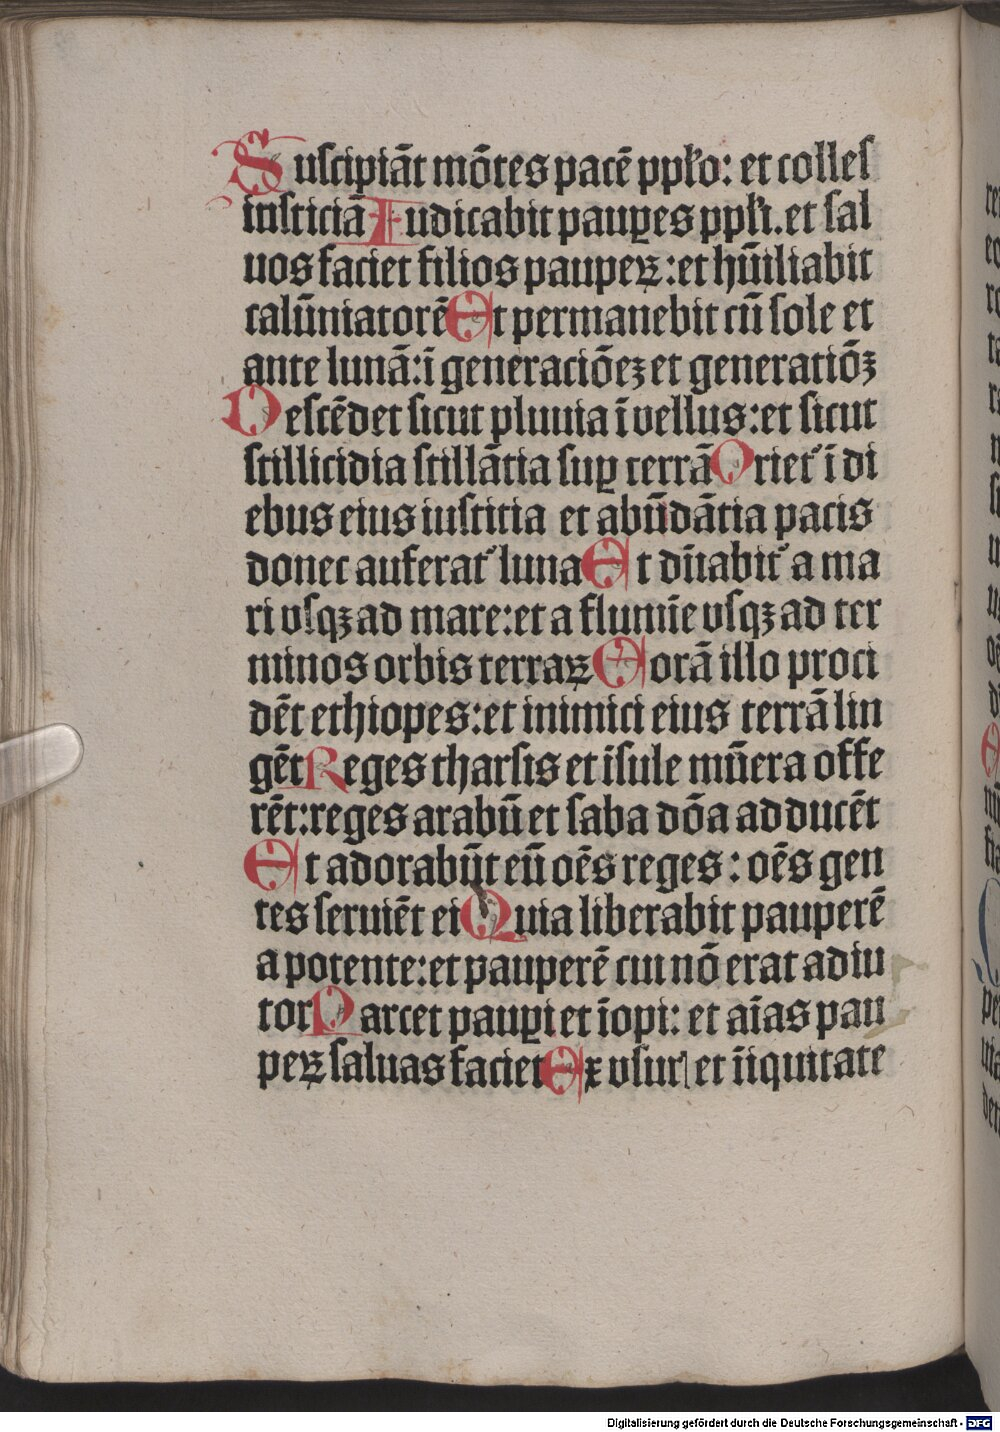 Suscipiāt mōtes pacē ppl'o: et colles
iusticiā Iudicabit pauꝑes ppl'i. et sal
uos faciet filios pauperꝝ: et hūiliabit
calūniatorē Et permanebit cū sole et
ante lunā: ī generaciōeꝫ et generatiōꝫ
Descēdet sicut pluuia ī vellus: et sicut
stillicidia stillātia suꝑ terrā Orietᷣ ī di
ebus eius iustitia et abūdātia pacis
donec auferatᷣ luna Et dn̄abitᷣ a ma
ri vsqꝫ ad mare: et a flumīe vsqꝫ ad ter
minos orbis terraꝝ Corā illo proci
dēt ethiopes: et inimici eius terrā lin
gēt Reges tharsis et īsule mūera offe
rēt: reges arabū et saba dōa adducēt
Et adorabūt eū oēs reges: oēs gen
tes seruiēt ei Quia liberabit pauperē
a potente: et pauperē cui nō erat adiu
tor Parcet pauꝑi et īopi: et aīas pau
peꝝ saluas faciet Ex vsurꝭ et īiquitate
Digitalisierung gefördert durch die Deutsche Forschungsgemeinschaft - DFG